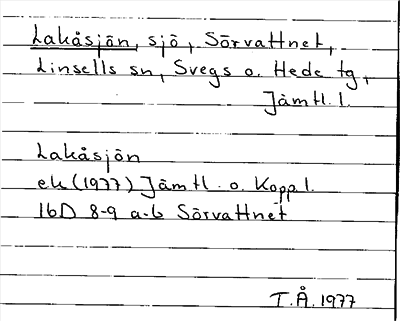 Lakåsjön, sjö, Sörvattnet,
Linsells sn, Svegs o. Hede tg,
Jämtl. l.
Lakåsjön
ek (1977) Jämtl. o. Koppl.
16D 8-9 a-b Sörvattnet
T.Å. 1977